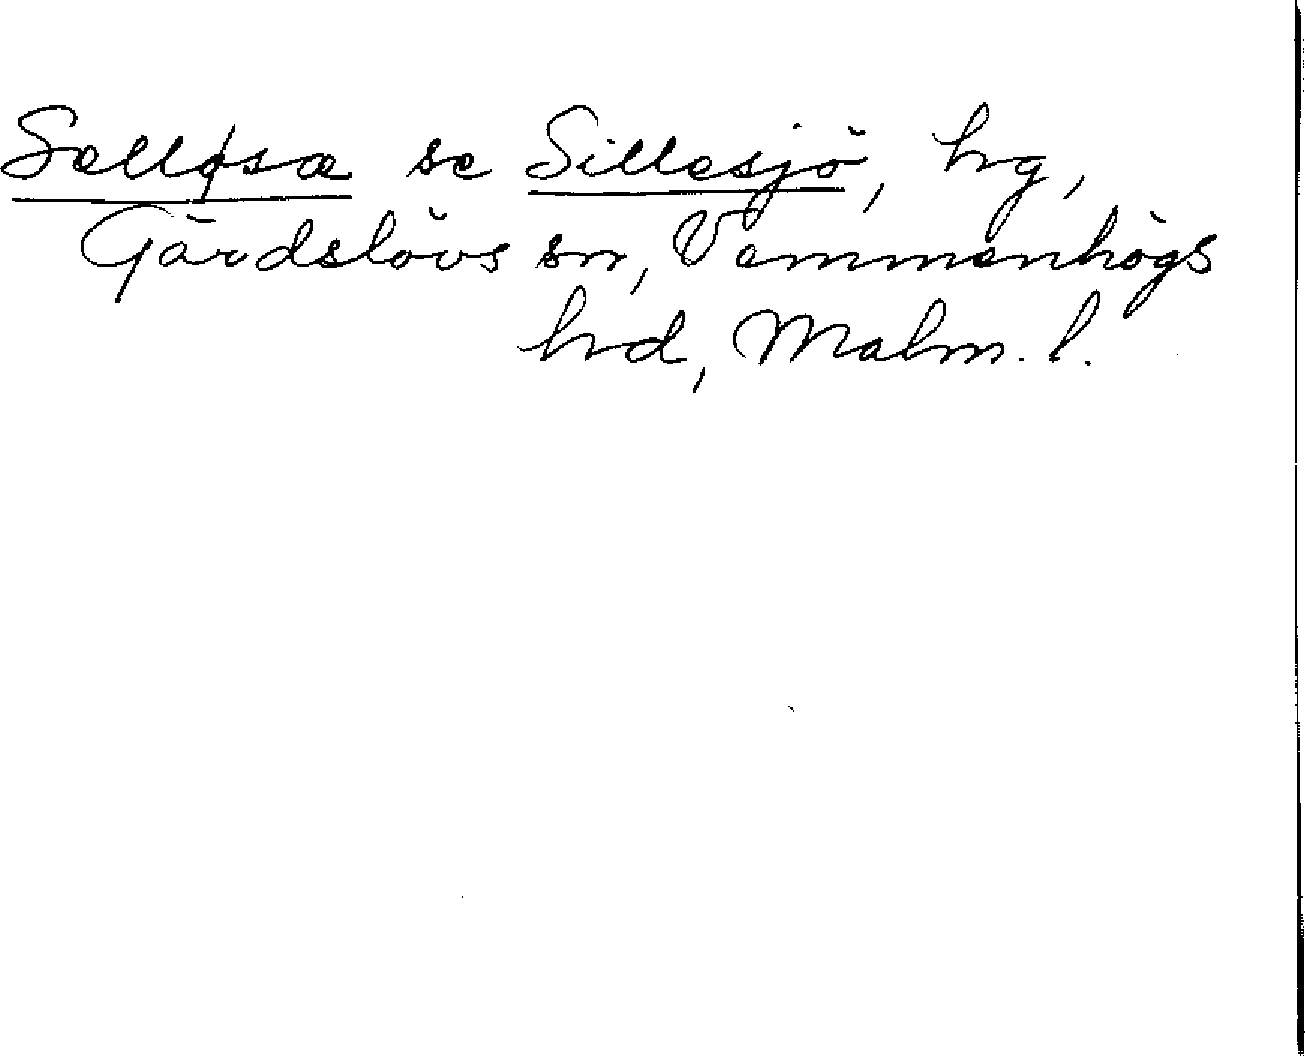 Ælløsæ se Sillesjö, hg,
Gärdslövs sn, Vemmenhögs
hd, Malm. l.